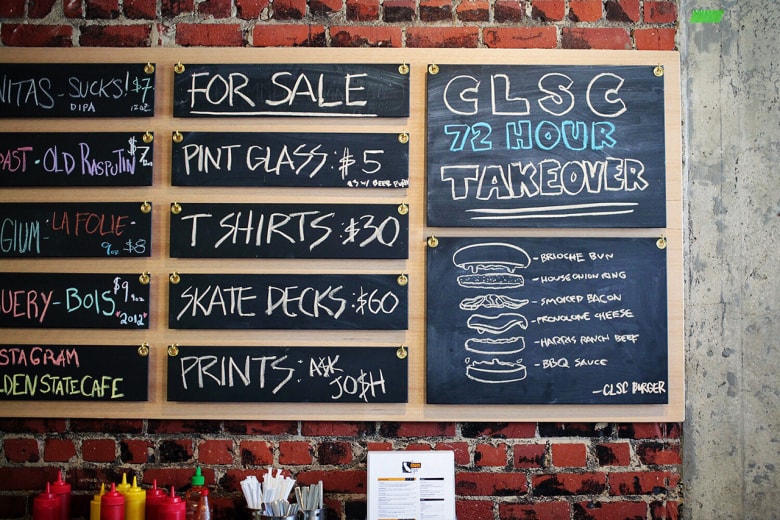 NITAS-SUCKS! $7
DIPA 12oz
PAST-OLD RASPUTIN $7
GIUM-LA FOLIE-
9oz $8
UERY-BOIS $9
9oz
"2012"
STAGRAM
LDENSTATECAFE
FOR SALE
PINT GLASS: $5
T SHIRTS: $30
SKATE DECKS: $60
PRINTS: ASK
JO$H
CLSC
72 HOUR
TAKEOVER
- BRIOCHE BUN
- HOUSE ONION RING
- SMOKED BACON
- PROVOLONE CHEESE
- HARRIS RANCH BEEF
- BBQ SAUCE
- CLSC BURGER